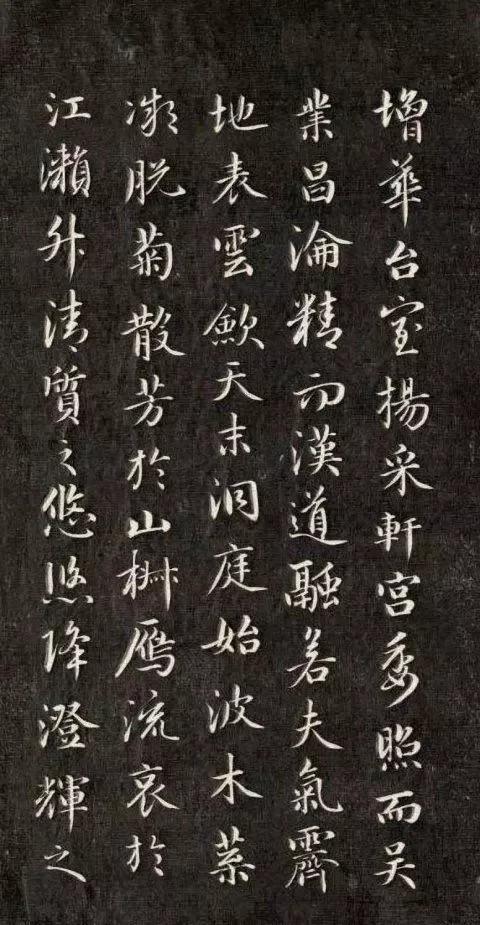 增華台室揚采軒宮委照而吴
業昌淪精而漢道融若夫氣霽
地表雲歛天末洞庭始波木葉
微脱菊散芳於山椒鴈流哀於
江瀨升清質之悠悠降澄輝之